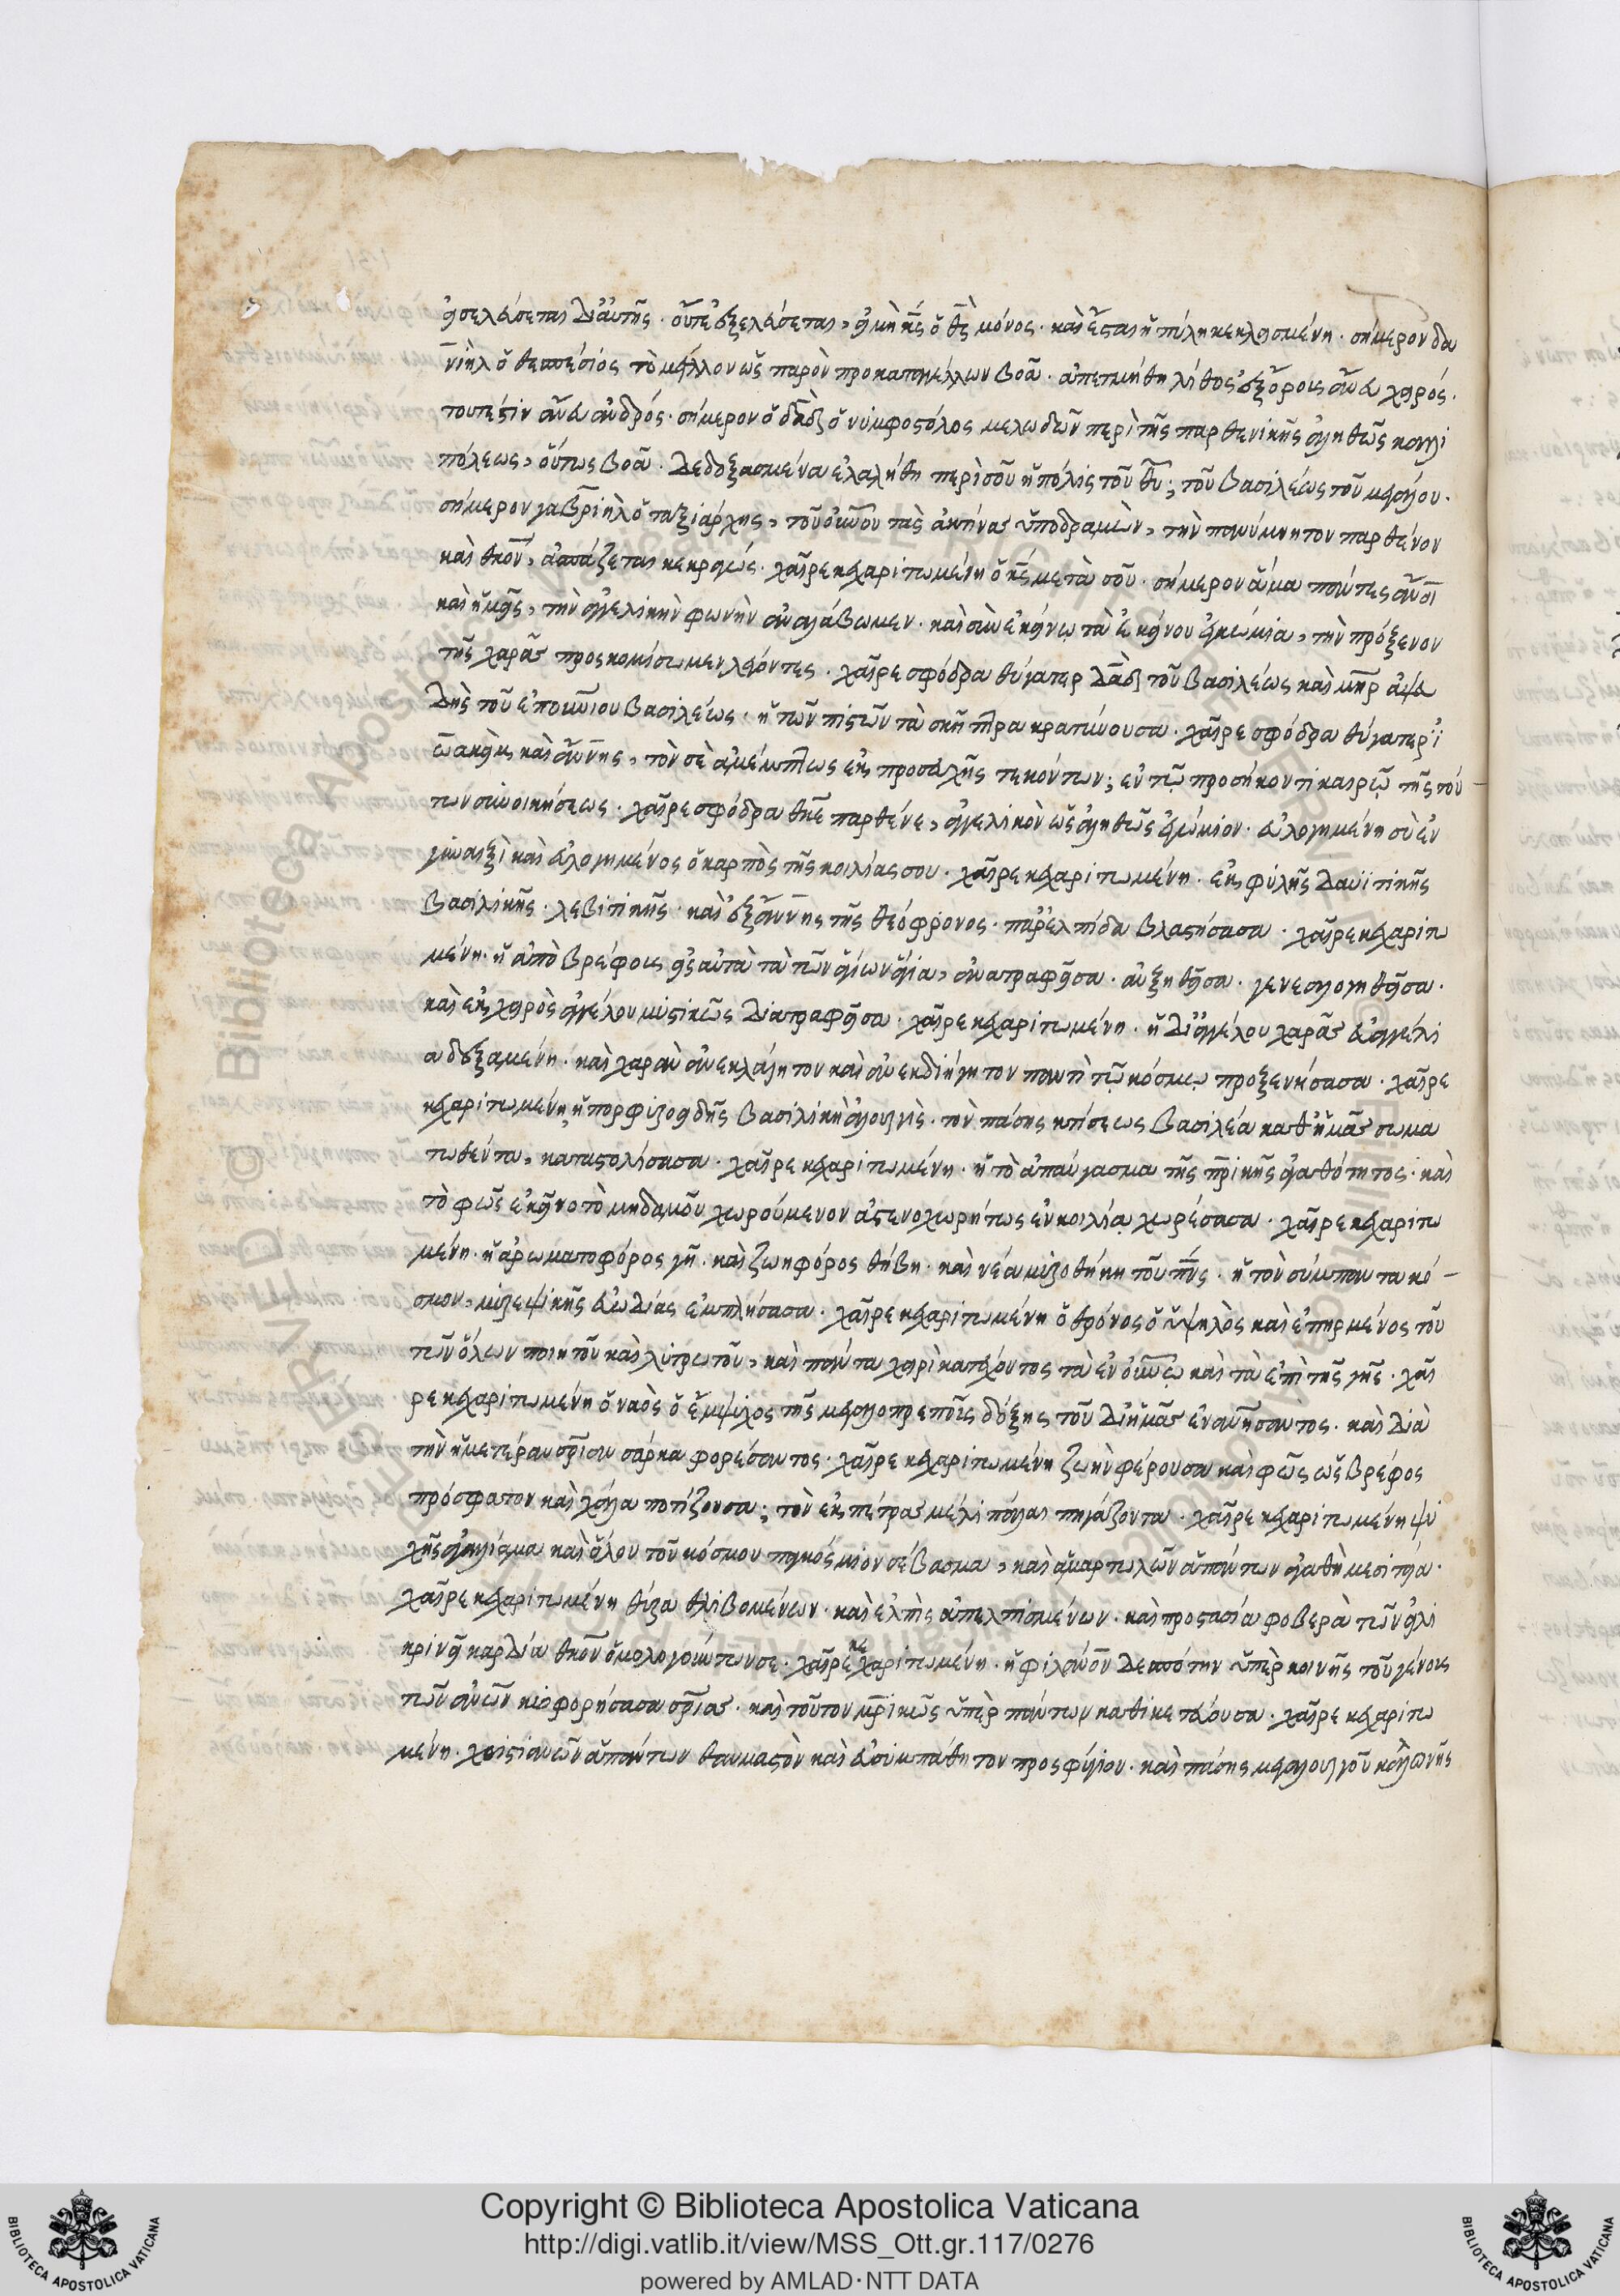 εἰσελεύσεται δι' αὐτῆς· οὔτε ἐξελεύσεται, εἰ μὴ κς ὁ θς μόνος· καὶ ἔσται ἡ πύλη κεκλεισμένη· σήμερον δα
νιὴλ ὁ θεσπέσιος τὸ μέλλον ὡς παρὸν προκαταγγέλλων βοᾶ· ἀπετμήθη λίθος ἐξ ὄρους ἄνευ χειρός·
τουτέστιν ἄνευ ἀνδρός· σήμερον ὁ δαδ ὁ νυμφοστόλος μελωδῶν περὶ τῆς παρθενικῆς ἀληθῶς καλλι
πόλεως, οὕτως βοᾶ· δεδοξασμένα ἐλαλήθη περὶ σοῦ ἡ πόλις τοῦ θυ; τοῦ βασιλέως τοῦ μεγάλου·
σήμερον γαβριὴλ ὁ ταξιάρχης, τοῦ οὐνου τὰς ἀκτῖνας ὑποδραμὼν, τὴν πανύμνητον παρθένον
καὶ θκον, ἀσπάζεται κεκραγώς· χαῖρε κεχαριτωμένη ὁ κς μετὰ σοῦ· σήμερον ἅμα πάντες ἄνοι
καὶ ἡμεῖς, τὴν ἀγγελικὴν φωνὴν ἀναλάβωμεν· καὶ σὺν ἐκείνω τὰ ἐκείνου ἐγκώμια, τὴν πρόξενον
τῆς χαρᾶς προσκομίσωμεν λέγοντες· χαῖρε σφόδρα θύγατερ δαδ τοῦ βασιλέως καὶ μηρ ἀψευ
δὴς τοῦ ἐπουνιου βασιλέως· ἡ τῶν πιστῶν τὰ σκῆπτρα κρατύνουσα· χαῖρε σφόδρα θύγατερ ἰ
ωακεὶμ καὶ ἄννης, τὸν σὲ ἀμέμπτως ἐκ προσευχῆς τεκόντων; ἐν τῷ προσήκοντι καιρῷ τῆς τού
των συνοικήσεως· χαῖρε σφόδρα θκε παρθένε, ἀγγελικὸν ὡς ἀληθῶς ἐγκώμιον· εὐλογημένη σὺ ἐν
γυναιξὶ καὶ εὐλογημένος ὁ καρπὸς τῆς κοιλίας σου· χαῖρε κεχαριτωμένη· ἐκ φυλῆς δαυϊτικῆς
βασιλικῆς· λεβιτικῆς· καὶ ἐξ ἄννης τῆς θεόφρονος· παρ' ἐλπίδα βλαστήσασα· χαῖρε κεχαριτω
μένη· ἡ ἀπὸ βρέφους εἰς αὐτὰ τὰ τῶν ἁγίων ἅγια, ἀνατραφεῖσα· αὐξηθεῖσα· γενεαλογηθεῖσα·
καὶ ἐκ χειρὸς ἀγγέλου μυστικῶς διατραφεῖσα· χαῖρε κεχαριτωμένη· ἡ δι' ἀγγέλου χαρᾶς εὐαγγέλι
α δεξαμένη· καὶ χαρὰν ἀνεκλάλητον καὶ ἀνεκδιήγητον παντὶ τῷ κόσμῳ προξενήσασα· χαῖρε
κεχαριτωμένη, ἡ πορφυροειδὴς βασιλικὴ ἁλουργὶς· τὸν πάσης κτίσεως βασιλέα καθ' ἡμᾶς σωμα
τωθέντα, καταστολίσασα· χαῖρε κεχαριτωμένη· ἡ τὸ ἀπαύγασμα τῆς πρικῆς ἀγαθότητος· καὶ
τὸ φῶς ἐκεῖνο τὸ μηδαμοῦ χωρούμενον ἀστενοχωρήτως ἐν κοιλίᾳ χωρέσασα· χαῖρε κεχαριτω
μένη· ἡ ἀρωματοφόρος γῆ· καὶ ζωηφόρος θήβη· καὶ νέα μυροθήκη τοῦ πνς· ἡ τὸν σύμπαντα κό
σμον, μυρεψικῆς εὐωδίας ἐμπλήσασα· χαῖρε κεχαριτωμένη ὁ θρόνος ὁ ὑψηλὸς καὶ ἐπηρμένος τοῦ
τῶν ὅλων ποιητοῦ καὶ λυτρωτοῦ, καὶ πάντα χειρὶ κατέχοντος τὰ ἐν οὐνῷ καὶ τὰ ἐπὶ τῆς γῆς· χαῖ
ρε κεχαριτωμένη ὁ ναὸς ὁ ἔμψυχος τῆς μεγαλοπρεποῦς δόξης τοῦ δι' ἡμᾶς ἐναυήσαντος· καὶ διὰ
τὴν ἡμετέραν σριαν σάρκα φορέσαντος· χαῖρε κεχαριτωμένη ζωὴν φέρουσα καὶ φῶς ὡς βρέφος
πρόσφατον καὶ γάλα ποτίζουσα; τὸν ἐκ πέτρας μέλι πάλαι πηγάζοντα· χαῖρε κεχαριτωμένη ψυ
χῆς ἀγαλλίαμα καὶ ὅλου τοῦ κόσμου παγκόσμιον σέβασμα, καὶ ἁμαρτωλῶν ἁπάντων ἀγαθὴ μεσιτεία·
χαῖρε κεχαριτωμένη θύρα θλιβομένων· καὶ ἐλπὶς ἀπελπισμένων· καὶ προστασία φοβερὰ τῶν εἰλι
κρινεῖ καρδία θκον ὁμολογούντων σε· χαῖρε κεχαριτωμένη· ἡ φιλάνον δεσπότην ὑπὲρ κοινῆς τοῦ γένους
τῶν ἀνων κυοφορήσασα σριας· καὶ τοῦτον μρικῶς ὑπὲρ πάντων καθικετεύουσα· χαῖρε κεχαριτω
μένη· χριστιανῶν ἁπάντων θαυμαστὸν καὶ εὐσυμπάθητον προσφύγιον· καὶ πάσης μεγαλουργοῦ καλλονῆς